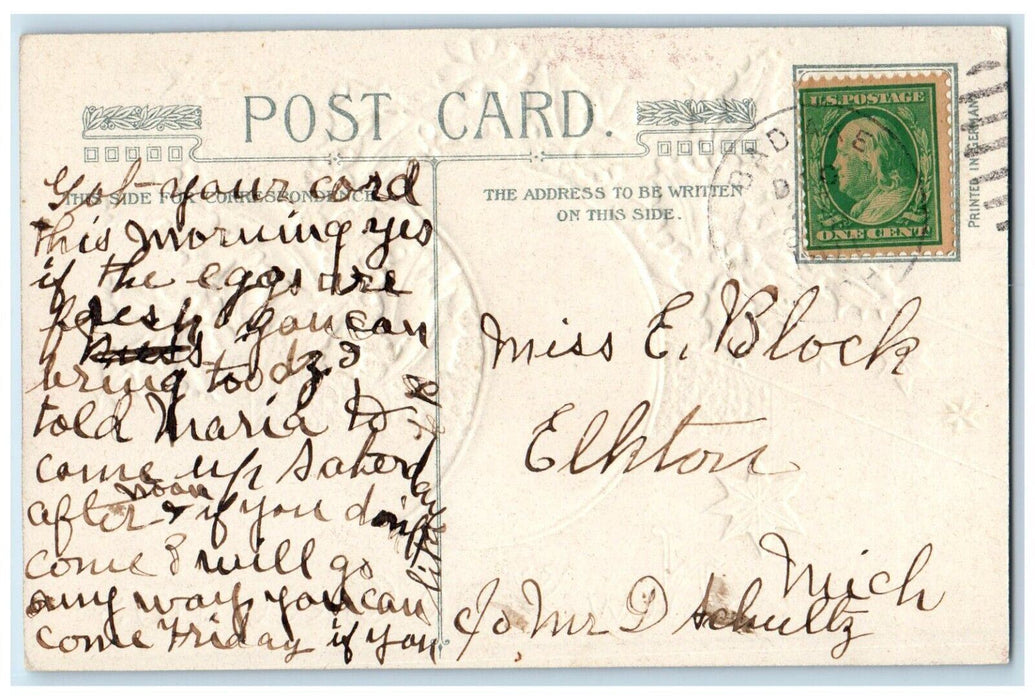 POST CARD.
THIS SIDE FOR CORRESPONDENCE
Got your card
this morning yes
if the eggs are
fresh you can
bring too dz I
told Maria to
come up Saterday
after noon & if you don't
come I will go
any way you can
come Friday if you
like to
THE ADDRESS TO BE WRITTEN
ON THIS SIDE.
U.S. POSTAGE
ONE CENT
PRINTED IN GERMANY
Miss E. Block
Elkton
Mich
c/o Mr D Schultz